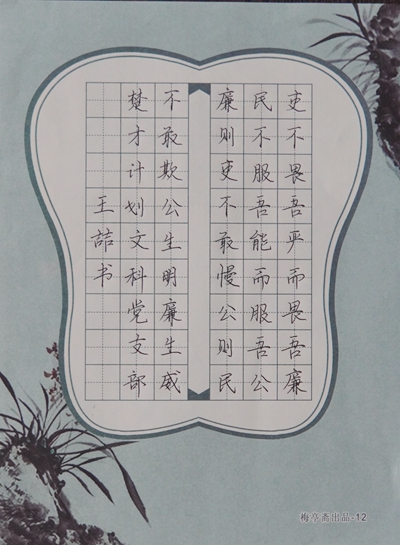 吏不畏吾严而畏吾廉
民不服吾能而服吾公
廉则吏不敢慢公则民
不敢欺公生明廉生威
楚才计划文科党支部
王喆书
梅亭斋出品-12